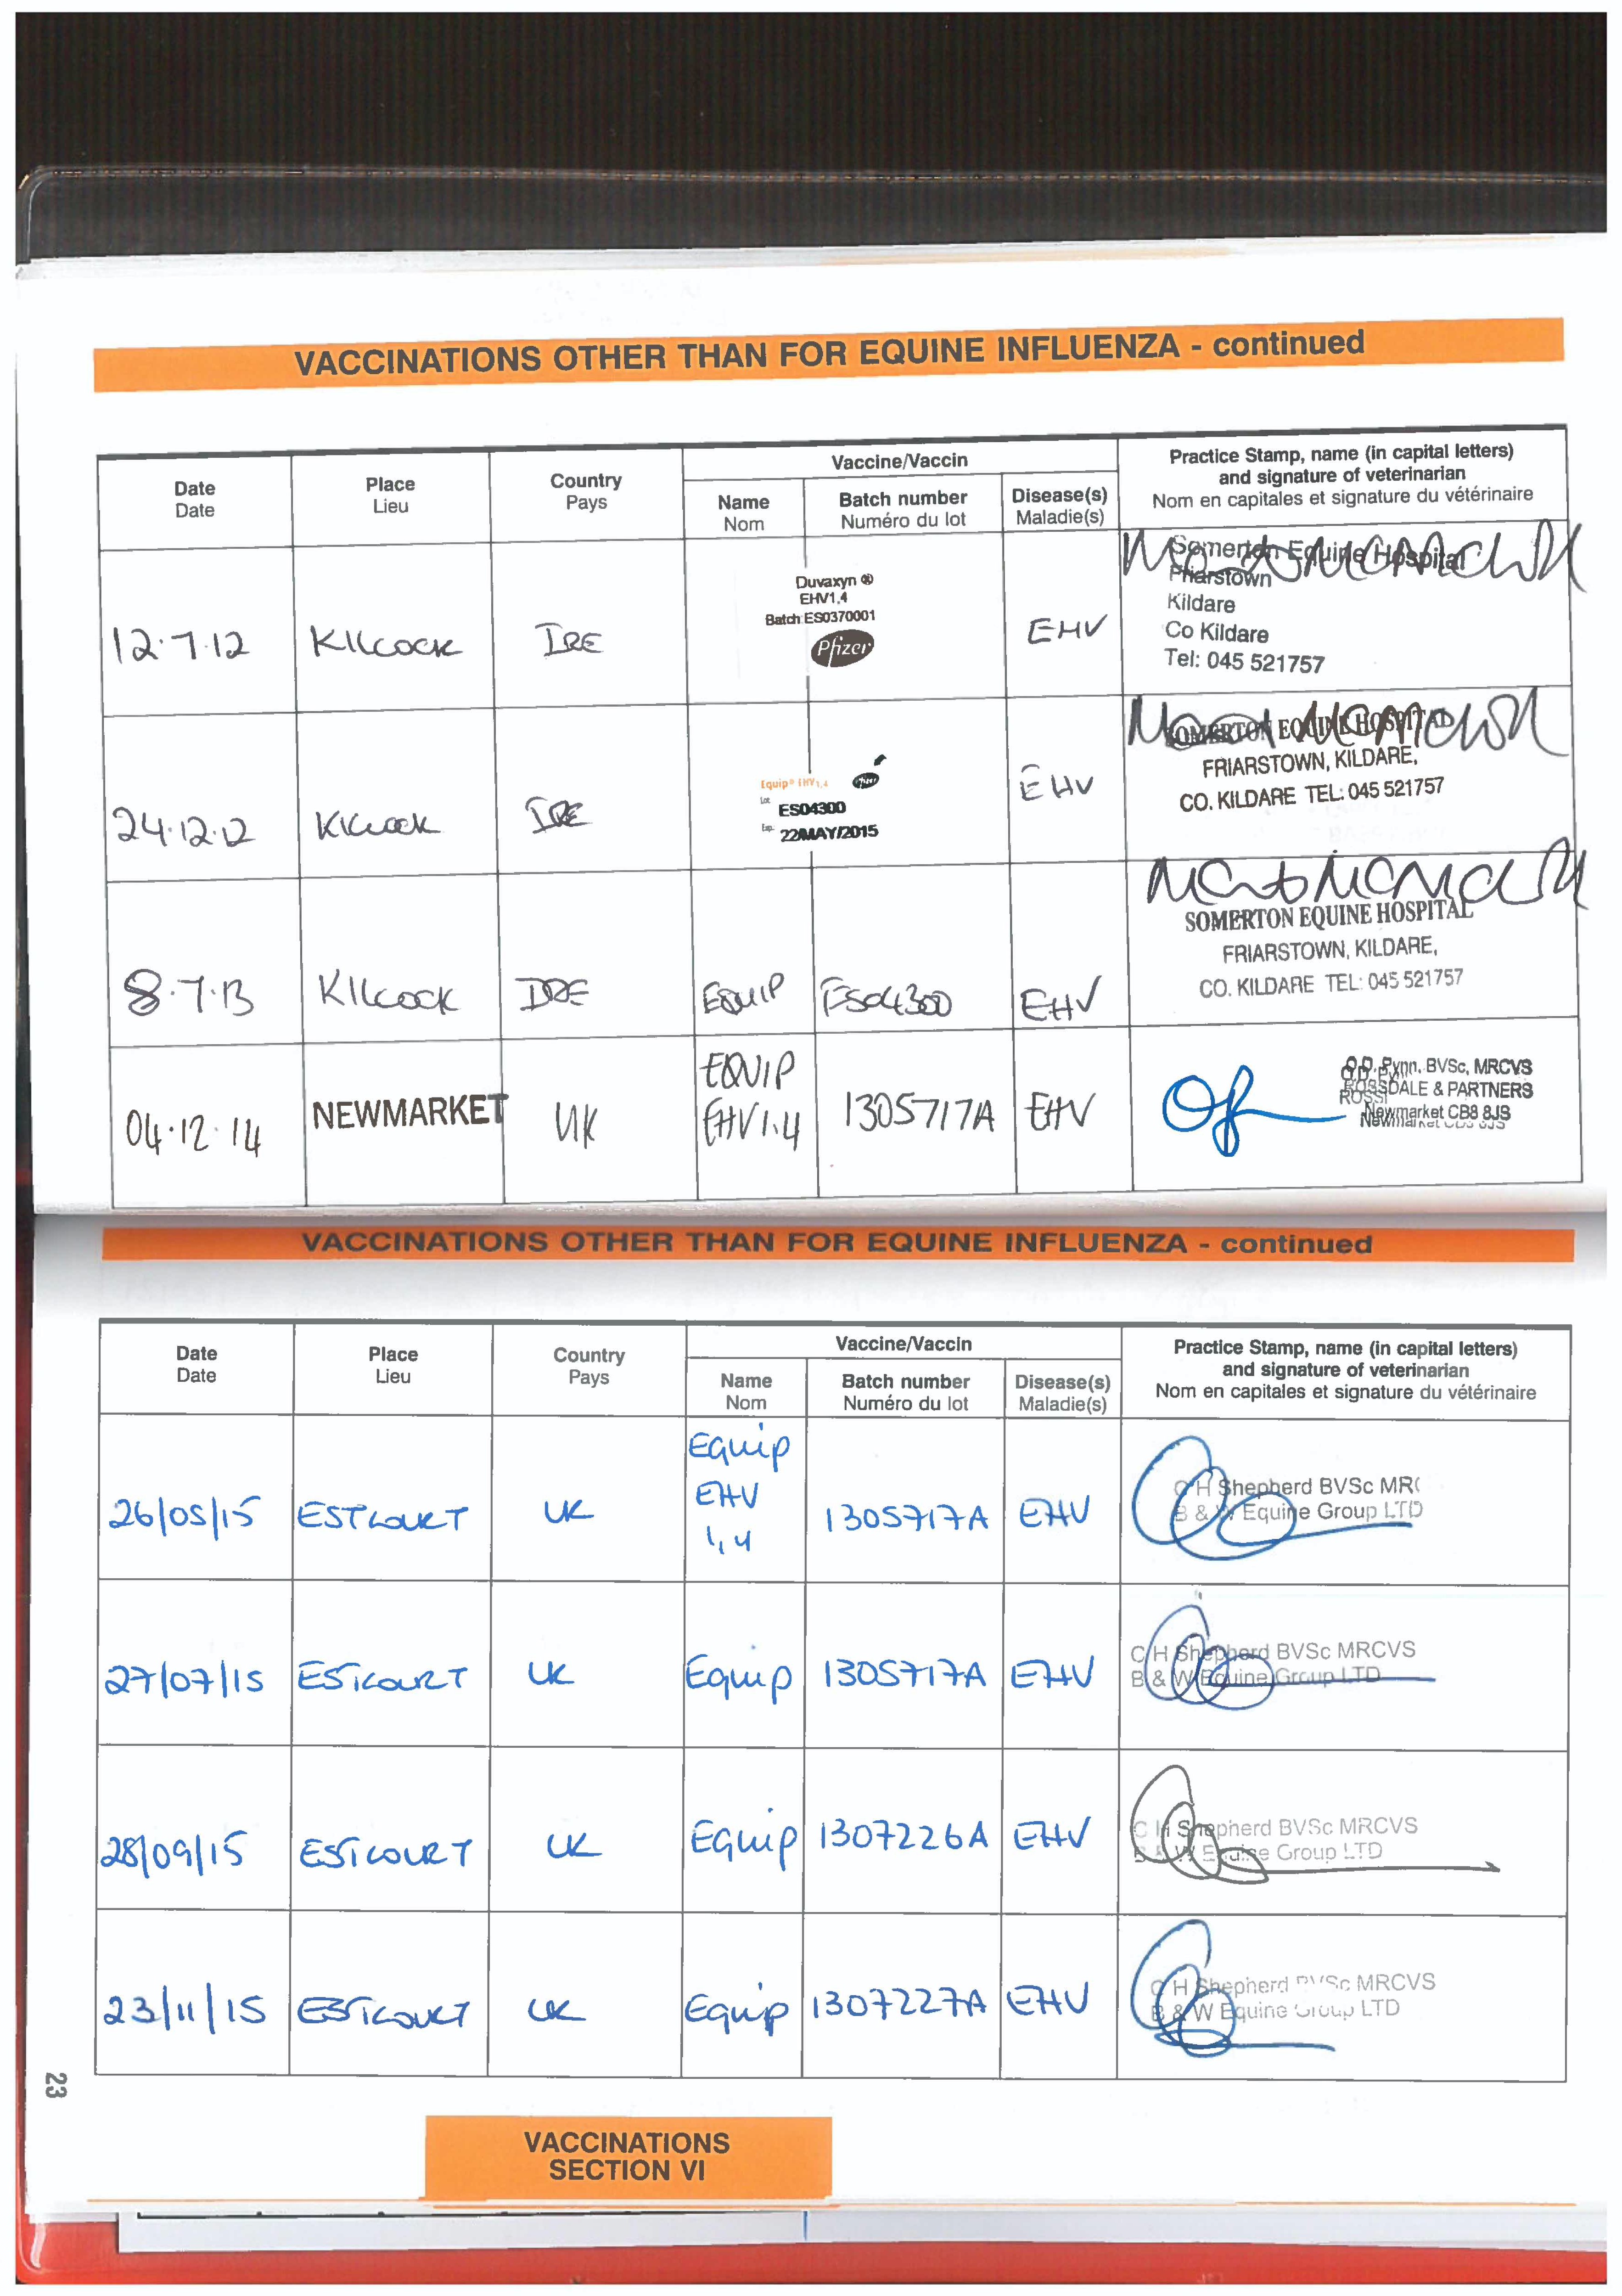 VACCINATIONS OTHER THAN FOR EQUINE INFLUENZA - continued
Date
Date
Place
Lieu
Country
Pays
Vaccine/Vaccin
Name
Nom
Batch number
Numéro du lot
Disease(s)
Maladie(s)
Practice Stamp, name (in capital letters)
and signature of veterinarian
Nom en capitales et signature du vétérinaire
12.7.12
KILCOCK
IRE
Duvaxyn ®
EHV1,4
Batch: ES0370001
Pfizer
EHV
Somerton Equine Hospital
Friarstown
Kildare
Co Kildare
Tel: 045 521757
24.12.12
Kilcock
IRE
Equip® EHV1,4
Pfizer
Lot
ES04300
Exp.
22MAY/2015
EHV
SOMERTON EQUINE HOSPITAL
FRIARSTOWN, KILDARE,
CO. KILDARE TEL: 045 521757
8.7.13
KILCOCK
IRE
EQUIP
ES04300
EHV
SOMERTON EQUINE HOSPITAL
FRIARSTOWN, KILDARE,
CO. KILDARE TEL: 045 521757
04.12.14
NEWMARKET
UK
EQUIP
EHV1.4
1305717A
EHV
O.D. Pynn, BVSc, MRCVS
ROSSDALE & PARTNERS
Newmarket CB8 8JS
VACCINATIONS OTHER THAN FOR EQUINE INFLUENZA - continued
Date
Date
Place
Lieu
Country
Pays
Vaccine/Vaccin
Name
Nom
Batch number
Numéro du lot
Disease(s)
Maladie(s)
Practice Stamp, name (in capital letters)
and signature of veterinarian
Nom en capitales et signature du vétérinaire
26/05/15
ESTCOURT
UK
Equip
EHV
1,4
1305717A
EHV
C H Shepherd BVSc MRC
B & W Equine Group LTD
27/07/15
ESTCOURT
UK
Equip
1305717A
EHV
C H Shepherd BVSc MRCVS
B & W Equine Group LTD
28/09/15
ESTCOURT
UK
Equip
1307226A
EHV
C H Shepherd BVSc MRCVS
B & W Equine Group LTD
23/11/15
ESTCOURT
UK
Equip
1307227A
EHV
C H Shepherd BVSc MRCVS
B & W Equine Group LTD
23
VACCINATIONS
SECTION VI